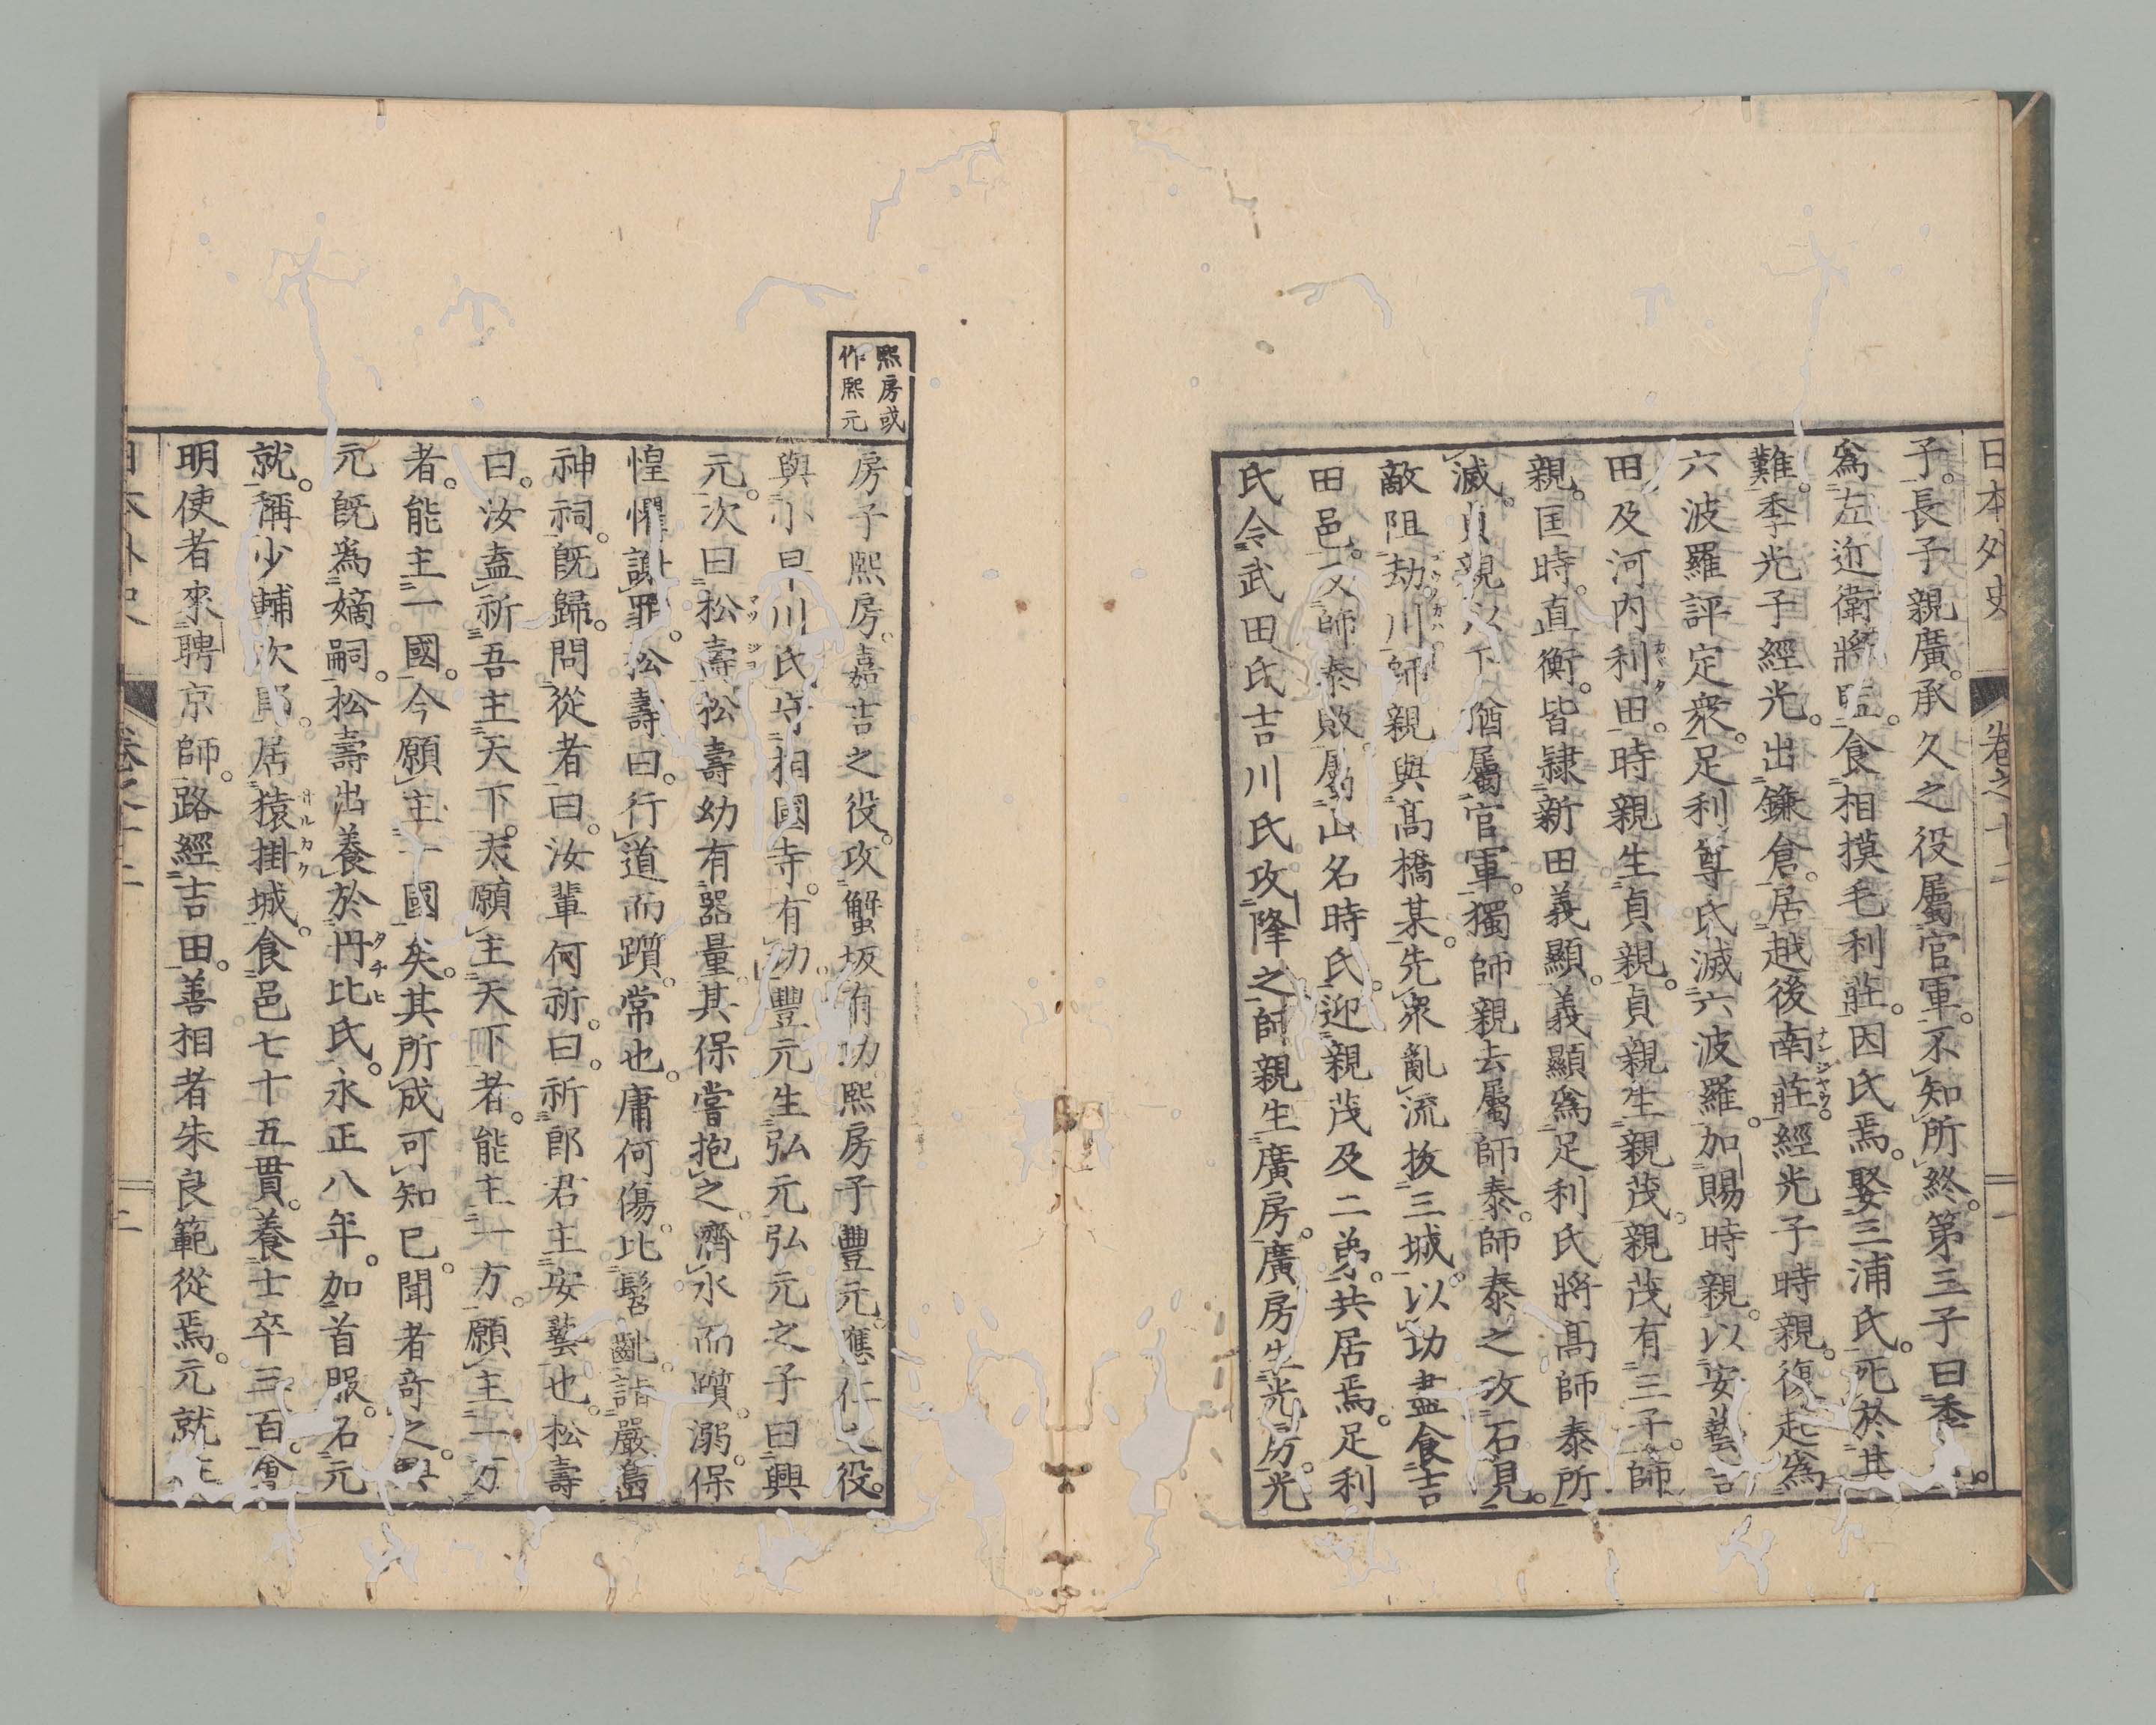 日本外史 卷之十二 一
子。長子親廣。承久之役屬官軍。不知所終。第三子曰季
爲左近衛將監。食相摸毛利莊。因氏焉。娶三浦氏。死於其
難。季光子經光。出鎌倉。居越後南莊。經光子時親。復起爲
六波羅評定衆。足利尊氏滅六波羅。加賜時親。以安藝吉
田及河内利田。時親生貞親。貞親生親茂。親茂有三子。師
親。匡時。直衡。皆隷新田義顯。義顯爲足利氏將高師泰所
滅。貞親以下猶屬官軍。獨師親去屬師泰。師泰之攻石見。
敵阻劫川。師親與高橋某。先衆亂流拔三城。以功盡食吉
田邑。又師泰敗。屬山名時氏。迎親茂及二弟。共居焉。足利
氏令武田氏吉川氏攻降之。師親生廣房。廣房生光房。光
熙房或
作熙元
房子熙房。嘉吉之役。攻蟹坂有功。熙房子豐元。應仁之役。
與小早川氏守相國寺。有功。豐元生弘元。弘元之子曰興
元。次曰松壽。松壽幼有器量。其保嘗抱之濟水而躓溺。保
惶懼謝罪。松壽曰。行道而躓。常也。庸何傷。比髫齔。詣嚴島
神祠。既歸。問從者曰。汝輩何祈。曰。祈郎君主安藝也。松壽
曰。汝盍祈吾主天下。夫願主天下者。能主一方。願主一方
者。能主一國。今願主一國矣。其所成可知已。聞者奇之。興
元既爲嫡嗣。松壽出養於丹比氏。永正八年。加首服。名元
就。稱少輔次郎。居猿掛城。食邑七十五貫。養士卒三百。會
明使者來聘京師。路經吉田。善相者朱良範從焉。元就
日本外史 卷之十二 二